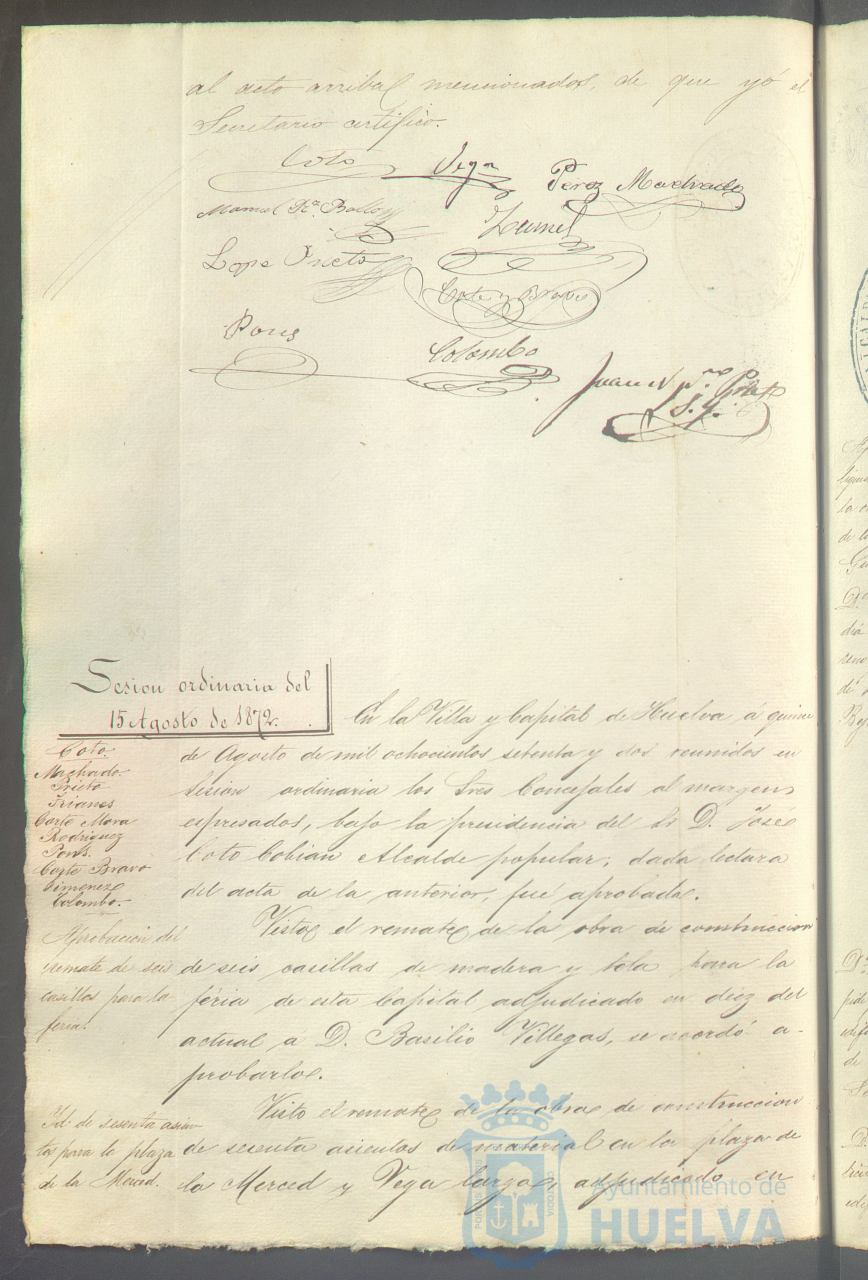 al acto arriba mencionados, de que yó el
Secretario certifico.
Coto
Vega
Perez Machado
Manuel
Lope Prieto
Corte y Bravo
Pons
Colombo
Juan
Sesion ordinaria del
15 Agosto de 1872.
Coto.
Machado.
Prieto
Trianes
Corte Mora
Rodriguez
Pons.
Corte Bravo
Gimenez
Colombo.
En la Villa y Capital de Huelva á quince
de Agosto de mil ochocientos setenta y dos reunidos en
sesion ordinaria los Sres Concejales al margen
espresados, bajo la presidencia del Sr. D. José
Coto Cobian Alcalde popular; dada lectura
del acta de la anterior, fué aprobada.
Aprobacion del
remate de seis
casillas para la
feria.
Visto el remate de la obra de construccion
de seis casillas de madera y tela para la
féria de esta Capital adjudicado en diez del
actual a D. Basilio Villegas, se acordó a-
probarlo.
Id. de sesenta asien
tos para la plaza
de la Merced.
Visto el remate de la obra de construccion
de sesenta asientos de material en la plaza de
la Merced y Vega larga, adjudicado en
PORTUS
CUSTODIA
Ayuntamiento de
HUELVA